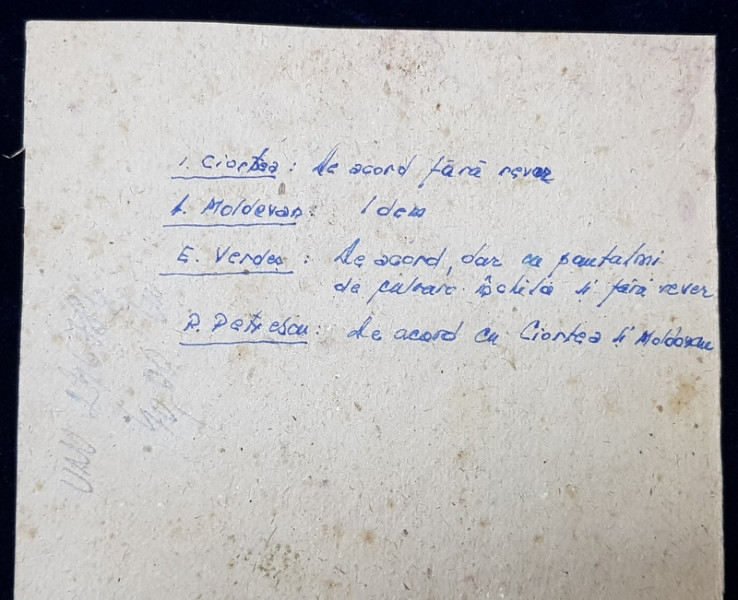 I. Ciortea : De acord fără rever
A. Moldovan : Idem
E. Verdeș : De acord, dar cu pantaloni
de culoare închisă și fără rever
R. Petrescu : De acord cu Ciortea și Moldovan